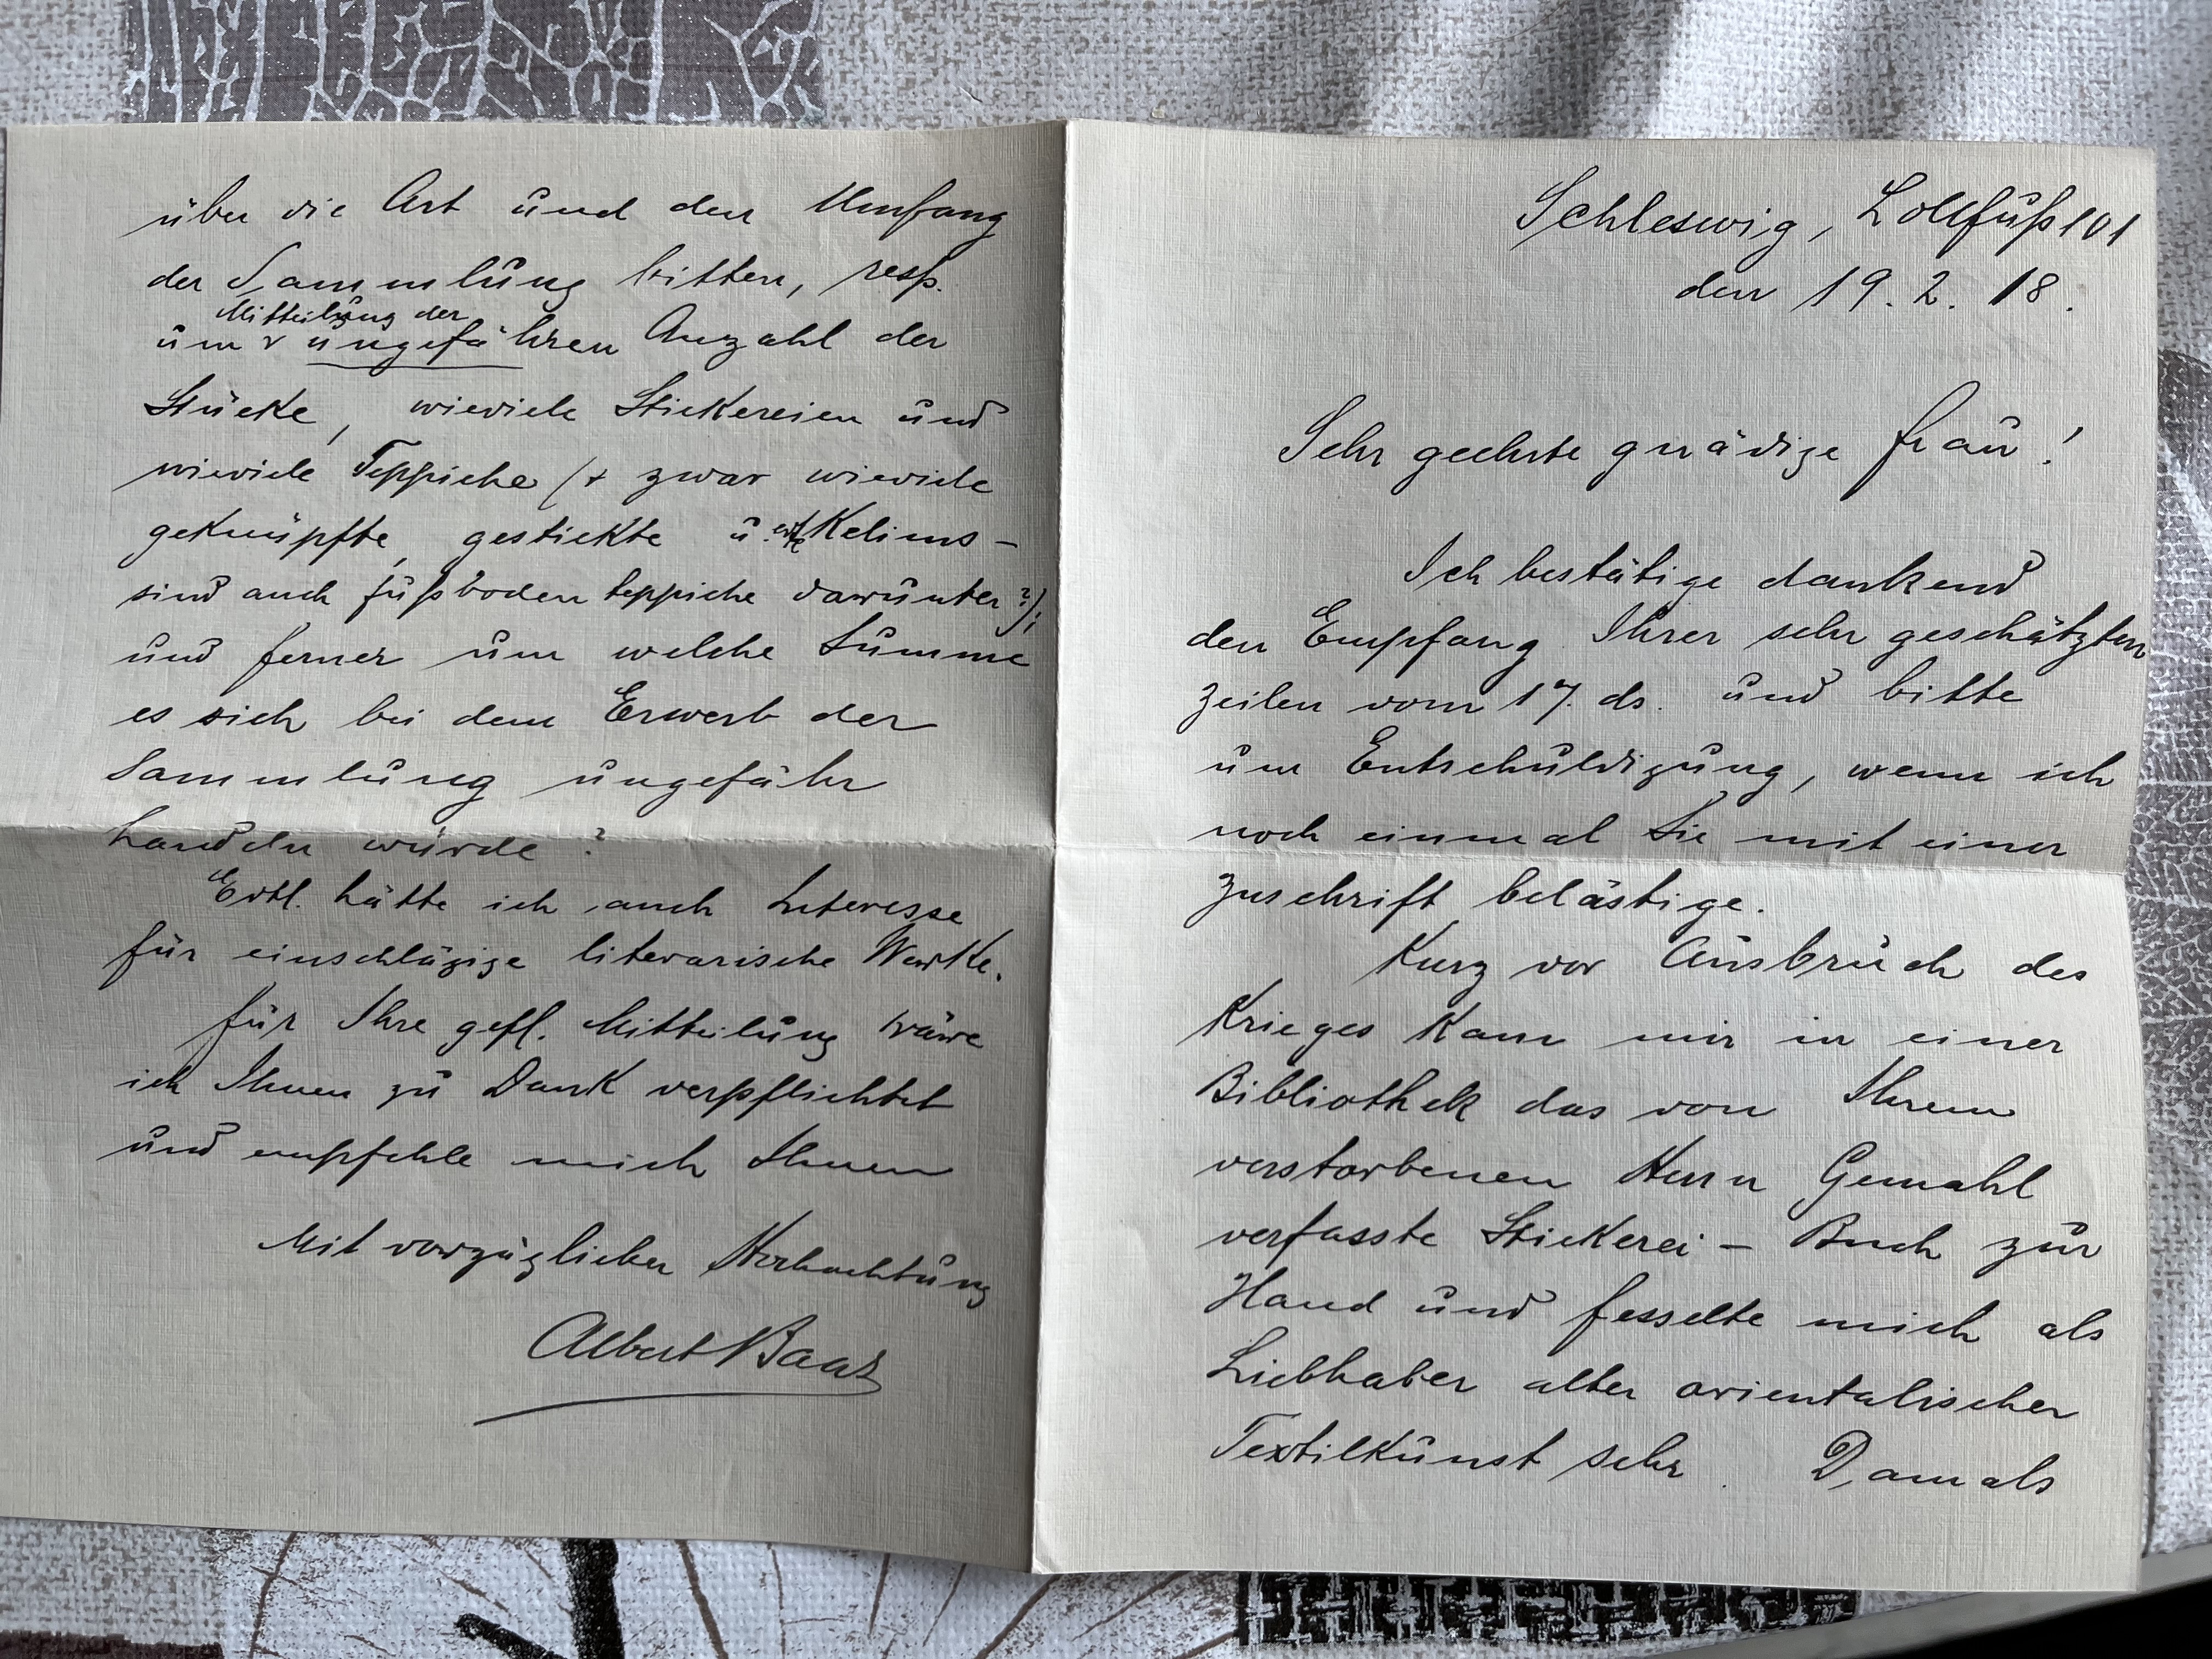 Schleswig, Lollfuß 101
den 19. 2. 18.
Sehr geehrte gnädige Frau!
Ich bestätige dankend
den Empfang Ihrer sehr geschätzten
Zeilen vom 17. ds. und bitte
um Entschuldigung, wenn ich
noch einmal Sie mit einer
Zuschrift belästige.
Kurz vor Ausbruch des
Krieges kam mir in einer
Bibliothek das von Ihrem
verstorbenen Herrn Gemahl
verfasste Stickerei - Buch zur
Hand und fesselte mich als
Liebhaber alter orientalischer
Textilkunst sehr. Damals
über die Art und den Umfang
der Sammlung bitten, resp.
Mitteilung der
um ungefähren Anzahl der
Stücke, wieviele Stickereien und
wieviele Teppiche (+ zwar wieviele
geknüpfte, gestickte u. Kelims -
sind auch Fußbodenteppiche darunter?);
und ferner um welche Summe
es sich bei dem Erwerb der
Sammlung ungefähr
handeln würde?
Evtl. hätte ich auch Interesse
für einschlägige literarische Werke.
Für Ihre gefl. Mitteilung wäre
ich Ihnen zu Dank verpflichtet
und empfehle mich Ihnen
Mit vorzüglicher Hochachtung
Albert Baar